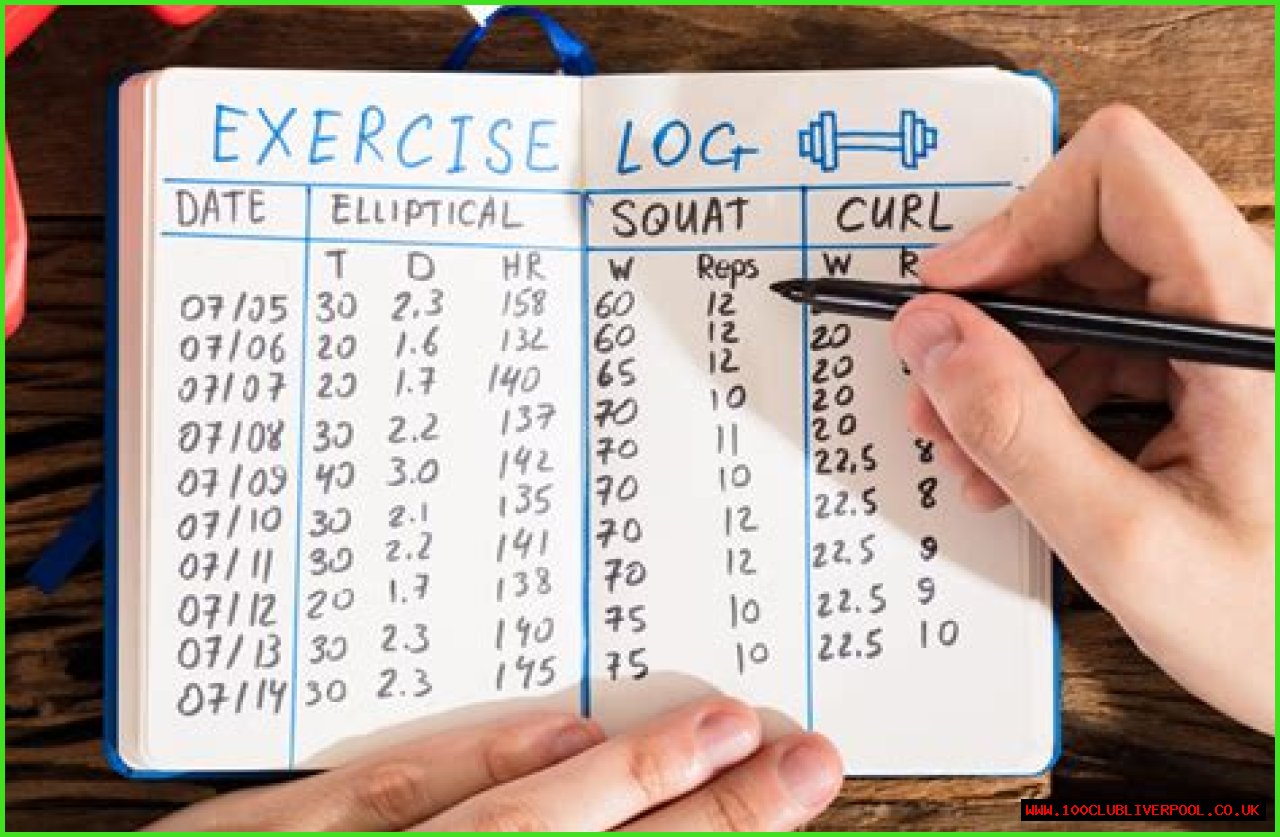 EXERCISE LOG
DATE ELLIPTICAL SQUAT CURL
T D HR W Reps W R
07/05 30 2.3 158 60 12
07/06 20 1.6 132 60 12 20
07/07 20 1.7 140 65 12 20
07/08 30 2.2 137 70 10 20
07/09 40 3.0 142 70 11 20
07/10 30 2.1 135 70 10 22,5 8
07/11 30 2.2 141 70 12 22.5 8
07/12 20 1.7 138 70 12 22.5 9
07/13 30 2.3 140 75 10 22.5 9
07/14 30 2.3 145 75 10 22.5 10
WWW.100CLUBLIVERPOOL.CO.UK